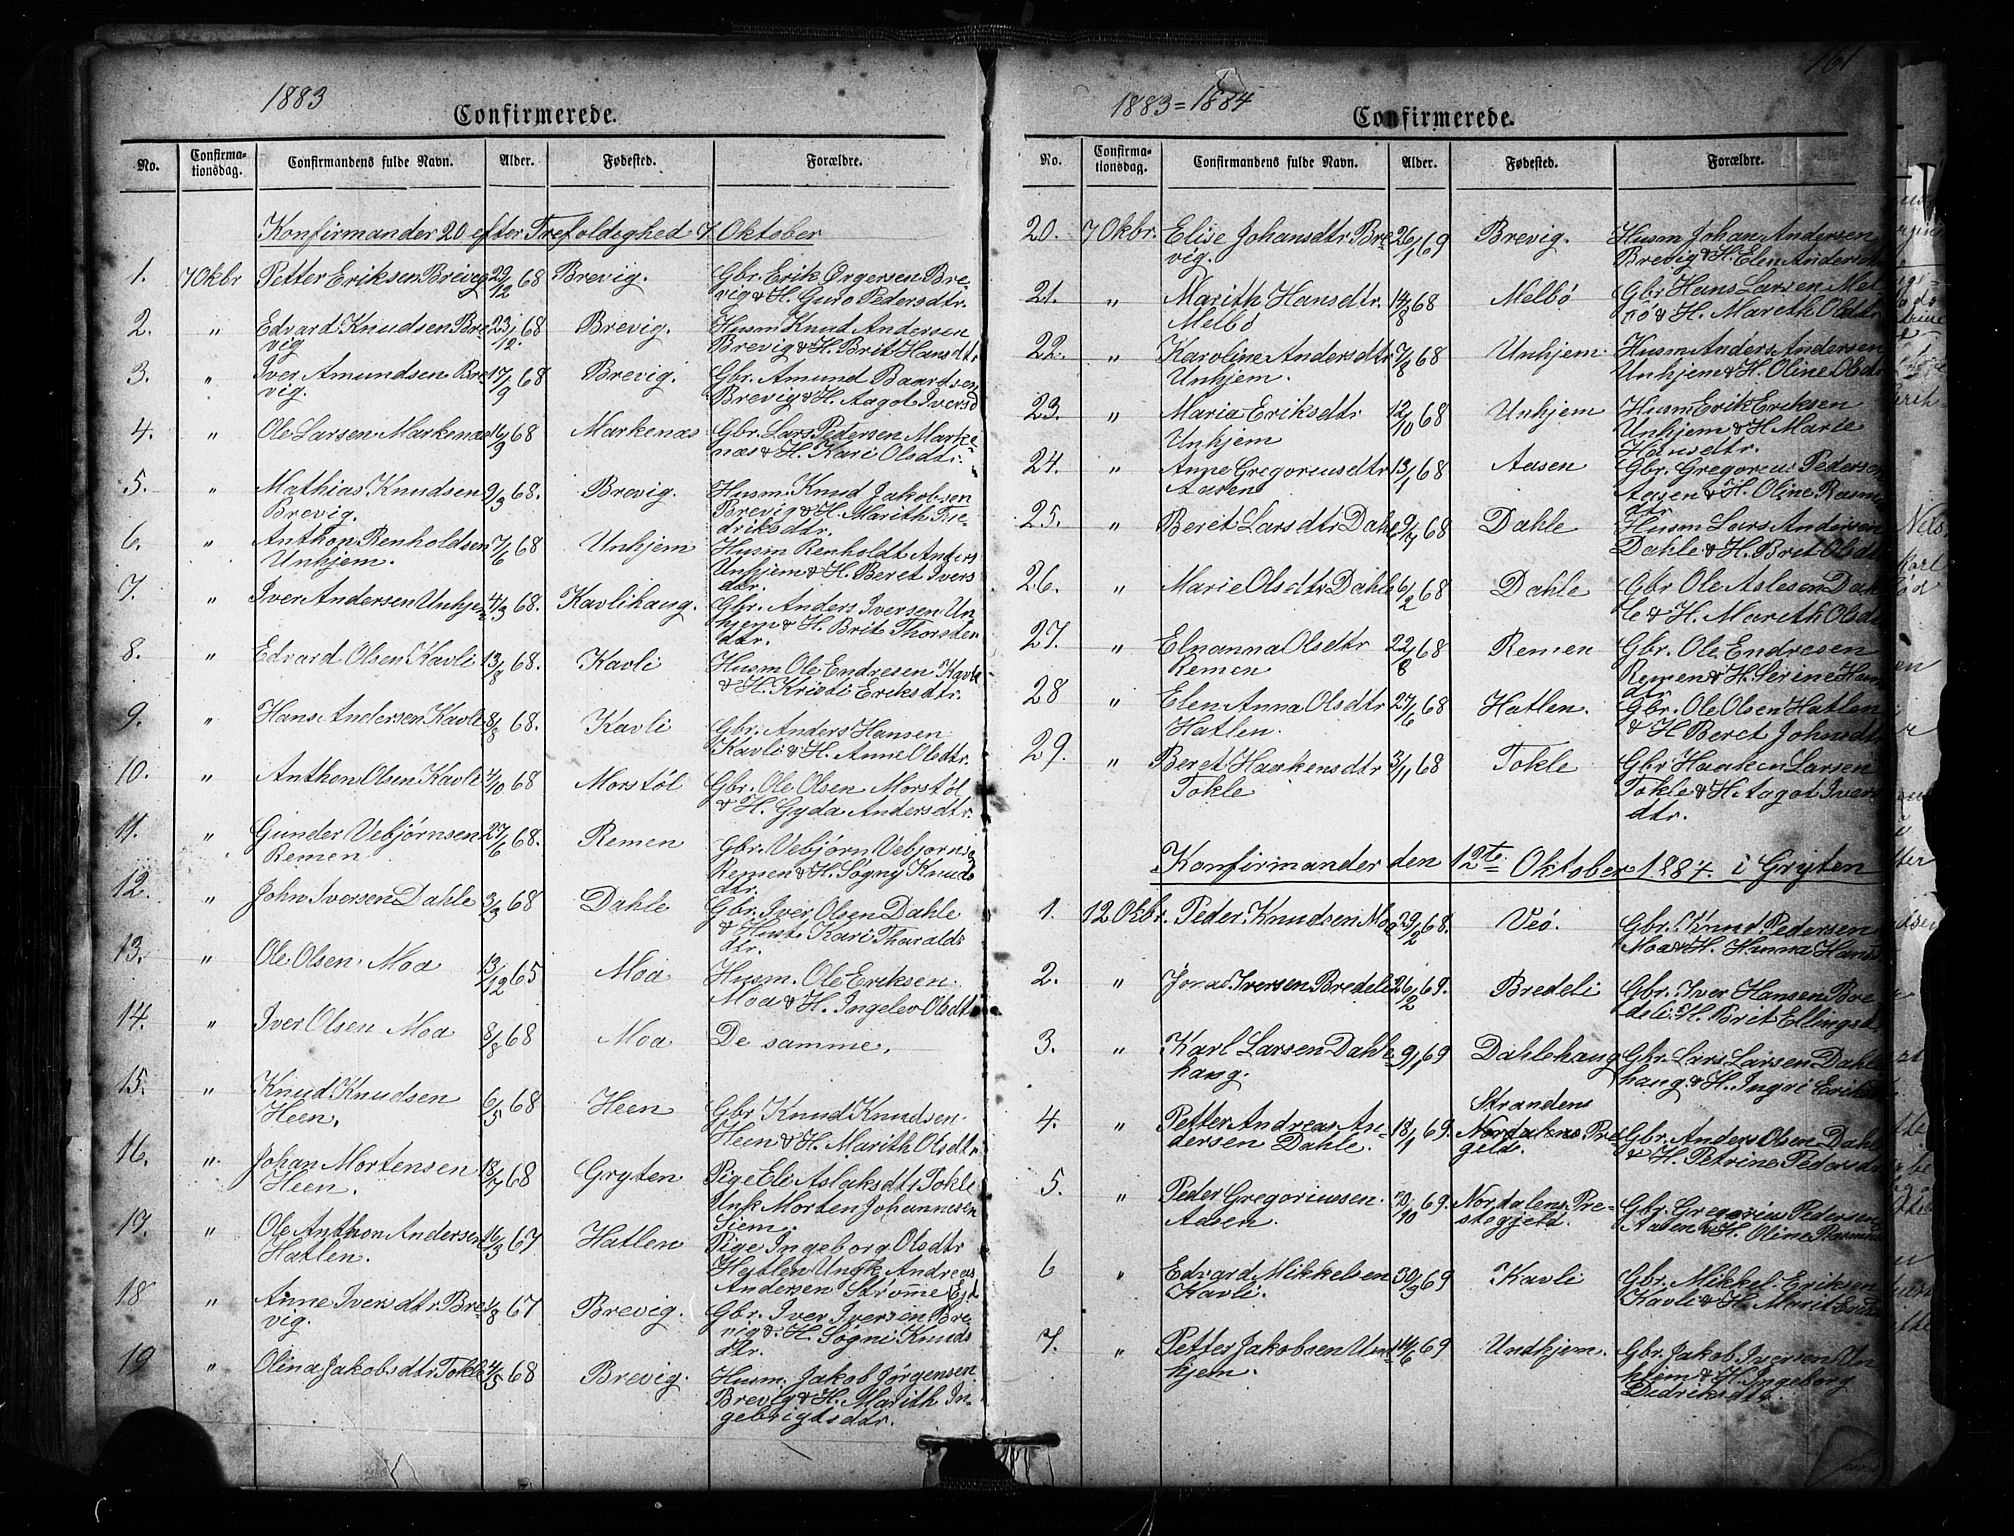 1883
Confirmerede.
No. Confirma-tionsdag. Confirmandens fulde Navn. Alder. Fødested. Forældre.
Konfirmander 20 efter Trefoldighed 7 Oktober
1. 7 Okbr Petter Eriksen Brevig 29/12 68 Brevig. Gbr. Erik Ørgersen Bre-
vig & H. Guro Pedersdtr.
2. " Edvard Knudsen Bre- 23/12 68 Brevig. Husm Knud Andersen
vig Brevig & H. Brit Hansdtr
3. " Iver Amundsen Bre- 17/9 68 Brevig. Gbr. Amund Baardsen
vig. Brevig & H. Aagot Iversd
4. " Ole Larsen Markenæs 16/9 68 Markenæs Gbr. Lars Pedersen Marke-
næs & H. Kari Olsdtr.
5. " Mathias Knudsen 9/3 68. Brevig. Husm. Knud Jakobsen
Brevig. Brevig & H. Marith Fre-
driksdtr.
6. " Anthon Renholdsen 7/6 68 Unhjem Husm Renholdt Anders
Unhjem. Unhjem & H. Beret Ivers
dtr.
7. " Iver Andersen Unhjem 4/3 68. Kavlihaug. Gbr. Anders Iversen Un-
hjem & H. Brit Thorsten
dtr.
8. " Edvard Olsen Kavli 13/8 68. Kavli Husm Ole Endresen Kavli
& H. Kristi Eriksdtr.
9. " Hans Andersen Kavli 8/8 68. Kavli Gbr. Anders Hansen
Kavli & H. Anne Olsdtr.
10. " Anthon Olsen Kavli 4/10 68 Morstöl Gbr. Ole Olsen Morstöl
& H. Gyda Andersdtr.
11. " Gunder Vebjørnsen 27/6 68. Remen Gbr. Vebjørn Vebjørns
Remen Remen & H. Søgny Knuds
dtr.
12. " John Iversen Dahle 3/3 68 Dahle Gbr. Iver Olsen Dahle
& Hust. Kari Tharalds
dtr.
13. " Ole Olsen Moa 13/12 65 Moa Husm. Ole Eriksen
Moa & H. Ingelev Olsdtr
14. " Iver Olsen Moa 8/8 68 Moa De samme.
15. " Knud Knudsen 6/5 68 Heen Gbr Knud Knudsen
Heen. Heen & H. Marith Olsdtr
16. " Johan Mortensen 18/7 68 Gryten Pige Eli Aslaksdtr Tokle
Heen. Unk Morten Johannesen
Siem.
17. " Ole Anthon Andersen 16/3 67 Hatlen Pige Ingeborg Olsdtr
Hatlen. Hetlen Ungk Andreas
Andersen Strømme
18 " Anne Iversdtr Bre- 1/8 67 Brevig. Gbr. Iver Iversen Bre-
vig. vig & H. Sögni Knuds
dtr.
19 " Olina Jakobsdtr Tokle 4/5 68 Brevig. Husm. Jakob Jørgensen
Brevig & H. Marith In-
gebrigtsdtr.
161
1883=1884
Confirmerede.
No. Confirma-tionsdag. Confirmandens fulde Navn. Alder. Fødested. Forældre.
20. 7 Okbr. Elise Johansdtr Bre 26/1 69 Brevig. Husm Johan Andersen
vig. Brevig & H. Elen Andersdtr
21. " Marith Hansdtr. 14/8 68 Melbö Gbr Hans Larsen Mel
Melbö bö & H. Marith Olsdtr
22. " Karoline Andersdtr 7/8 68 Unhjem Husm Anders Andersen
Unhjem. Unhjem & H. Oline Olsdtr
23. " Maria Eriksdtr 12/10 68 Unhjem Husm Erik Eriksen
Unhjem Unhjem & H. Marie
Hansdtr.
24. " Anne Gregoriusdtr 13/1 68 Aasen Gbr. Gregorius Pedersen
Aasen Aasen & H. Oline Rasmus
dtr
25. " Beret Larsdtr Dahle 9/7 68 Dahle Husm Lars Andersen
Dahle & H. Bret Olsdtr
26. " Marie Olsdtr Dahle 6/2 68 Dahle Gbr Ole Aslesen Dah
le & H. Marith Olsdtr
27. " Elnanna Olsdtr 22/8 68 Remen Gbr. Ole Endresen
Remen Remen & H. Serine Hans
dtr
28 " Elen Anna Olsdtr 27/6 68 Hatlen. Gbr. Ole Olsen Hatlen
Hatlen. & H Beret Johnsdtr
29. " Beret Haakensdtr 3/1 68 Tokle Gbr Haaken Larsen
Tokle Tokle & H. Aagot Ivers
dtr.
Konfirmander den 12te Oktober 1884. i Gryten
1. 12 Okbr. Peder Knudsen Moa 29/2 68. Veö. Gbr. Knud Pedersen
Moa & H. Hanna Hans
2. " Jörne Iversen Bredeli 26/2 69. Bredeli Gbr. Iver Hansen Bre-
deli. H. Brit Ellingsd.
3. " Karl Larsen Dahle 9/1 69 Dahlehaug Gbr. Lars Larsen Dahle
haug. haug & H. Ingri Eriksd
4. " Petter Andreas An- 18/1 69. Strandens
dersen Dahle. Nordalens Pre- Gbr. Anders Olsen Dahle
geld. & H. Petrine Pedersd
5. " Peder Gregoriussen 20/10 69. Nordalens Pre- Gbr. Gregorius Pedersen
Aasen. stegjeld. Aasen & H. Oline Rasmus
6 " Edvard Mikkelsen 30/9 69 Kavli Gbr. Mikkel Eriksen
Kavli. Kavli & H. Marit
7. " Petter Jakobsen Un- 14/6 69 Undhjem. Gbr. Jakob Iversen Un
hjem. hjem & H. Ingeborg
Didriksdtr.